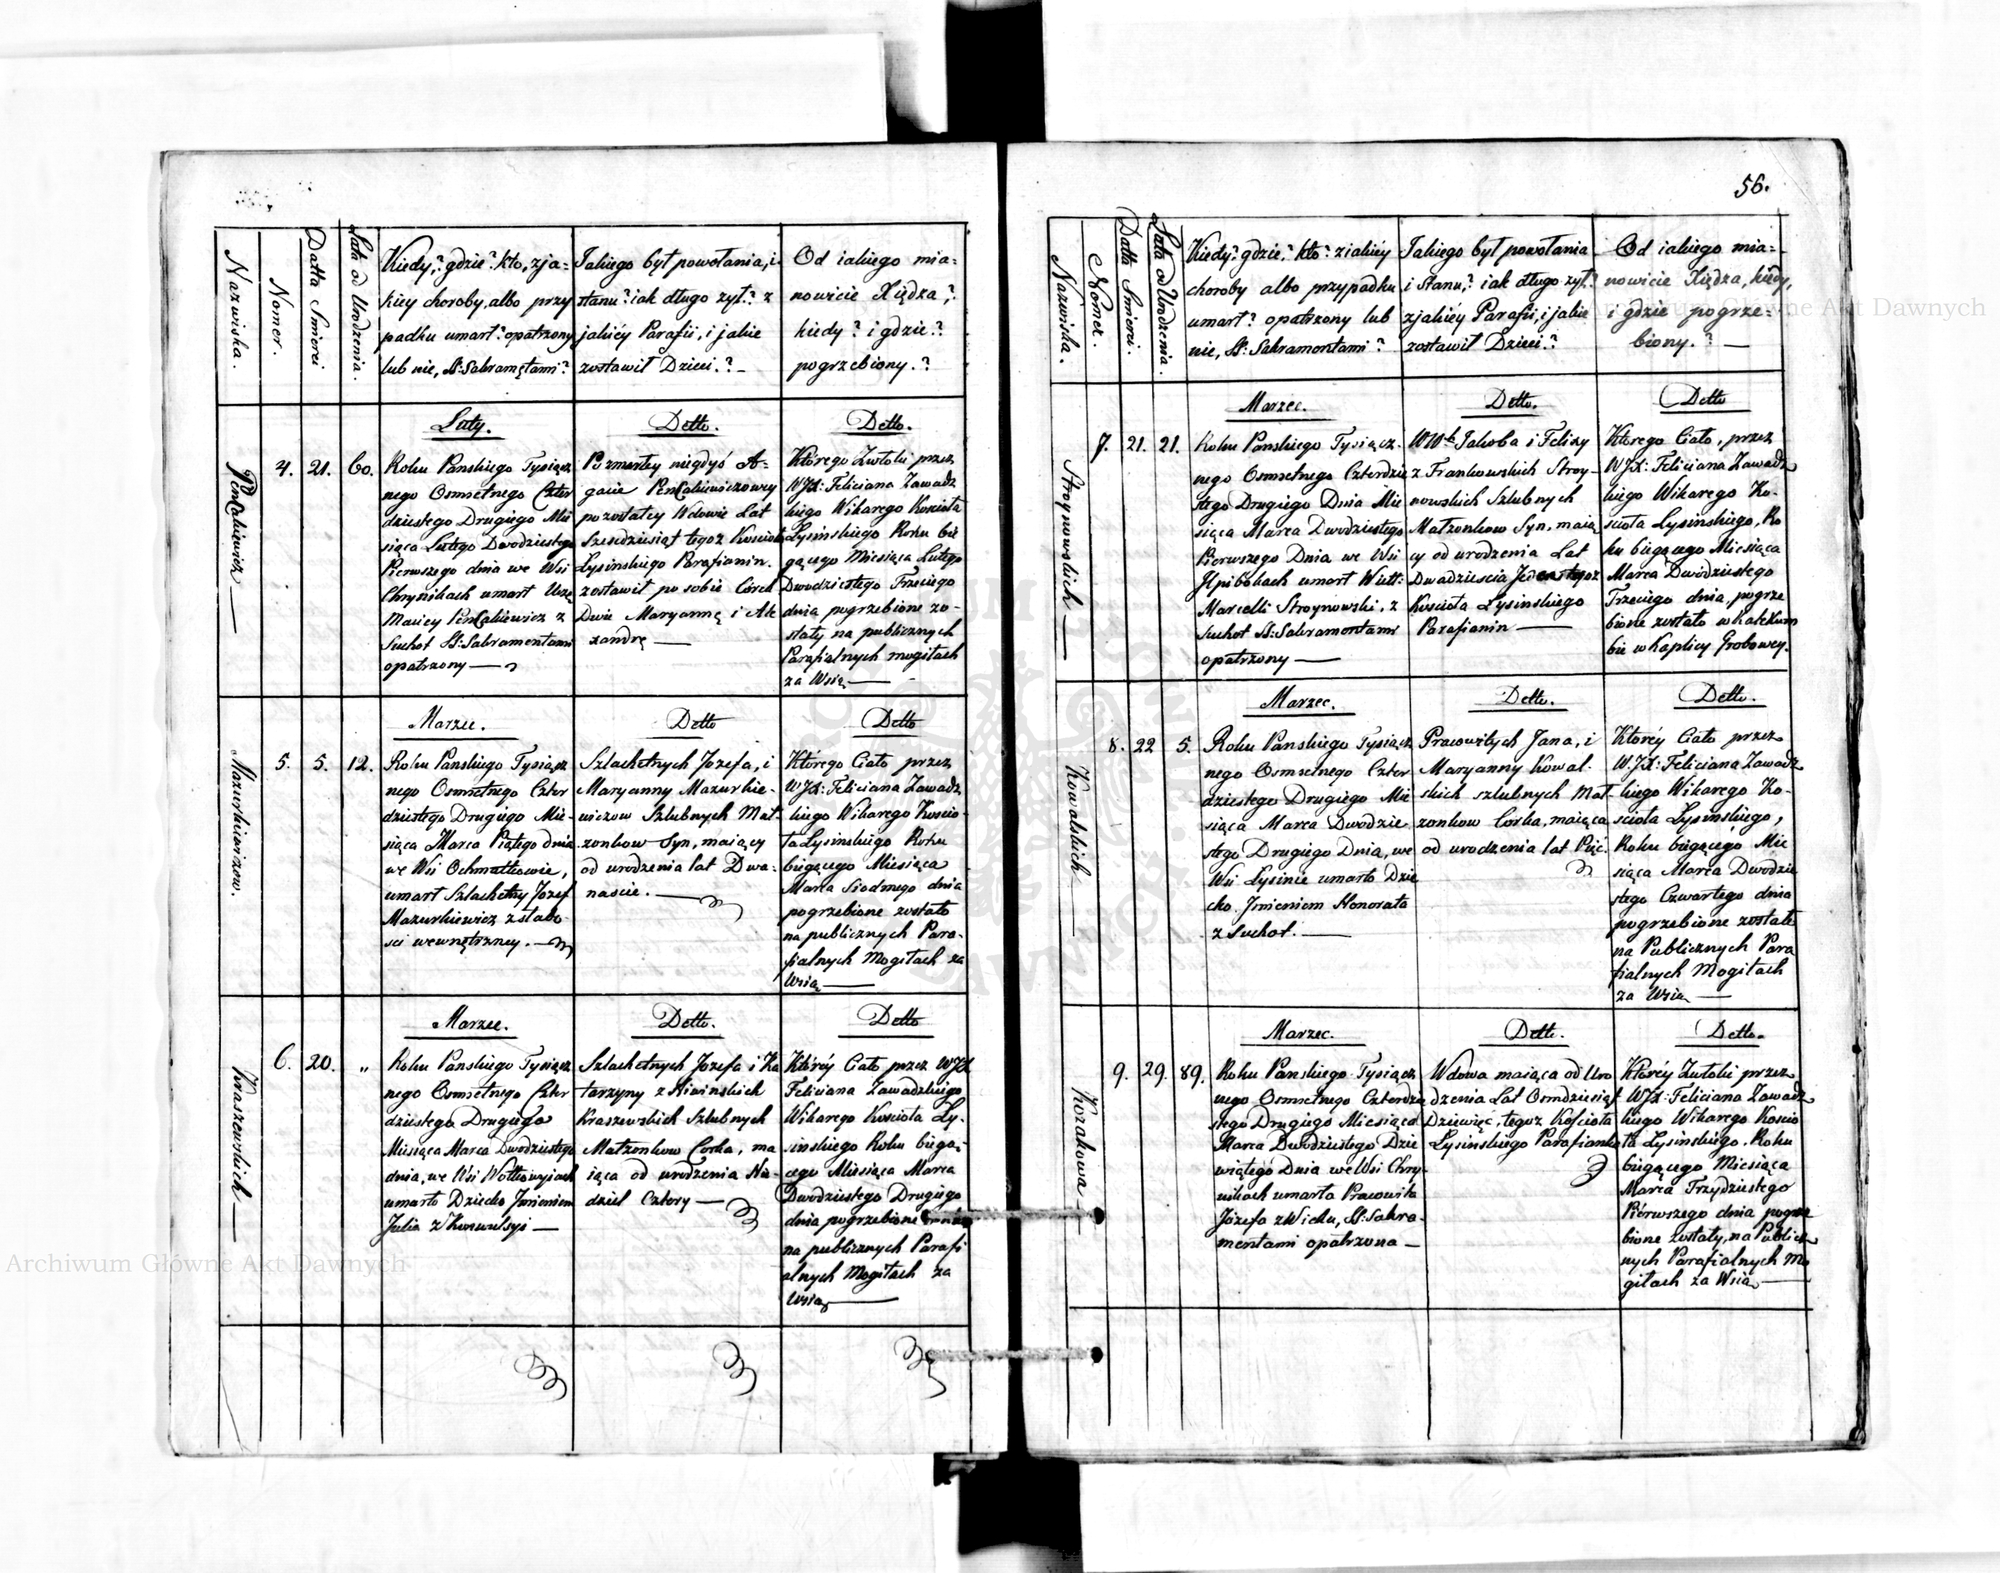 Nazwiska.
Nomer.
Datta Smierci.
Lata od Urodzenia.
Kiedy,? gdzie? kto, zja=
kiey choroby, albo przy
padku umarł? opatrzony
lub nie, SS: Sakramętami?
Jakiego był powołania, i
stanu? iak długo zył? z
jakiéy Parafii, i jakie
zostawił Dzieci.?
Od iakiego mia=
nowicie Xiędza,?
kiedy? i gdzie.?
pogrzebiony.?
4.
21.
60.
Luty.
Roku Panskiego Tysiącz
nego Osmsetnego Czter
dziestego Drugiego Mie
siąca Lutego Dwodziestego
Pierwszego dnia we Wsi
Chrynikach umarł Urzę
Maciey Penczakiewicz z
Suchot SS: Sakramentami
opatrzony
Detto.
Po zmarłey niegdyś A=
gacie
pozostałey Wdowie Lat
Szesdziesiąt tegoż Kościoła
Lysinskiego Parafianin.
zostawił po sobie Córek
Dwie Maryannę i Ale
xandrę
Detto.
Którego Zwłoki przez
WJX: Feliciana Zawadz
kiego Wikarego Kościoła
Lysinskiego Roku bie
gącego Miesiąca Lutego
Dwodziestego Trzeciego
dnia pogrzebione zo-
stały na publicznych
Parafialnych mogiłach
za Wsią
Mazurkiewiczow.
5.
5.
12.
Marzec.
Roku Panskiego Tysiącz
nego Osmsetnego Czter
dziestego Drugiego Mie-
siąca Marca Piątego dnia
we Wsi Ochmatkowie,
umarł Szlachetny Jozef
Mazurkiewicz z słabo
sci wewnętrzney.
Detto
Szlachetnych Jozefa, i
Maryanny Mazurkie-
wiczow Szlubnych Mał
zonkow Syn, maiący
od urodzenia lat Dwa-
nascie.
Detto
Którego Ciało przez
WJX: Feliciana Zawadz
kiego Wikarego Koscio-
ła Lysinskiego Roku
biegącego Miesiąca
Marca Siodmego dnia
pogrzebione zostało
na publicznych Para-
fialnych Mogiłach za
Wsią
Kraszewskich
6.
20.
"
Marzec.
Roku Panskiego Tysiącz
nego Osmsetnego Czter
dziestego Drugiego
Miesiąca Marca Dwodziestego
dnia, we Wsi Wołkowyjach
umarło Dziecko Jmieniem
Julia z Konwulsyi
Detto.
Szlachetnych Jozefa i Ka
tarzyny z
Kraszewskich Szlubnych
Małzonkow Corka, ma
iąca od urodzenia Nie-
dziel Cztery
Detto
Któréy Ciało przez WJX
Feliciana Zawadzkiego
Wikarego Kościoła Ly-
sinskiego Roku biegą-
cego Miesiąca Marca
Dwodziestego Drugiego
dnia pogrzebione
na publicznych Parafi
alnych Mogiłach za
Wsią
56.
Nazwiska.
Nomer.
Datta Smierci.
Lata od Urodzenia.
Kiedy? gdzie,? kto? ziakiéy
choroby albo przypadku
umarł? opatrzony lub
nie, SS: Sakramentami?
Jakiego był powołania
i Stanu,? iak długo zył?
zjakiéy Parafii, i jakie
zostawił Dzieci.?
Od iakiego mia=
nowicie Xiędza, kiedy,
i gdzie pogrze=
biony.?
Stroynowskich
7.
21.
21.
Marzec.
Roku Panskiego Tysiącz.
nego Osmsetnego Czterdzie
stego Drugiego Dnia Mie
siąca Marca Dwodziestego
Pierwszego Dnia we Wsi
umarł
Marcelli Stroynowski, z
Suchot SS: Sakramentami
opatrzony
Detto.
Jakoba i Felixy
z Frankowskich Stroy-
nowskich Szlubnych
Małzonkow Syn, maią
cy od urodzenia Lat
Dwadziescia Jeden tegoz
Kościoła Lysinskiego
Parafianin
Detto
Którego Ciało, przez
WJX: Feliciana Zawadz
kiego Wikarego Ko-
scioła Lysinskiego, Ro
ku biegącego Miesiąca
Marca Dwodziestego
Trzeciego dnia, pogrze
bione zostało w katakum
bie w Kaplicy Grobowey.
Kowalskich
8.
22
5.
Marzec.
Roku Panskiego Tysiącz
nego Osmsetnego Czter
dziestego Drugiego Mie
siąca Marca Dwodzie
stego Drugiego Dnia, we
Wsi Lysinie umarło Dzie
cko Jmieniem Honorata
z Suchot.
Detto.
Pracowitych Jana, i
Maryanny Kowal-
skich szlubnych Mał
zonkow Corka, maiąca
od urodzenia lat Pięć.
Detto.
Któréy Ciało przez
WJX: Feliciana Zawadz
kiego Wikarego Ko-
scioła Lysinskiego,
Roku biegącego Mie
siąca Marca Dwodzie
stego Czwartego dnia
pogrzebione zostało
na Publicznych Para
fialnych Mogiłach
za Wsią
Kozakowa
9.
29.
89.
Marzec.
Roku Panskiego Tysiącz
nego Osmsetnego Czterdzie
stego Drugiego Miesiąca
Marca Dwodziestego Dzie
wiątego Dnia we Wsi Chry-
nikach umarła Pracowita
Józefa z Wieku, SS: Sakra-
mentami opatrzona
Detto.
Wdowa maiąca od Uro
dzenia Lat Osmdziesiąt
Dziewięć, tegoz Kościoła
Lysinskiego Parafianka
Detto.
Któréy Zwłoki przez
WJX: Feliciana Zawadz
kiego Wikarego Koscio
ła Lysinskiego. Roku
biegącego Miesiąca
Marca Trzydziestego
Piérwszego dnia pogrze
bione zostały, na Publicz
nych Parafialnych Mo
giłach za Wsią
Archiwum Główne Akt Dawnych
Archiwum Główne Akt Dawnych